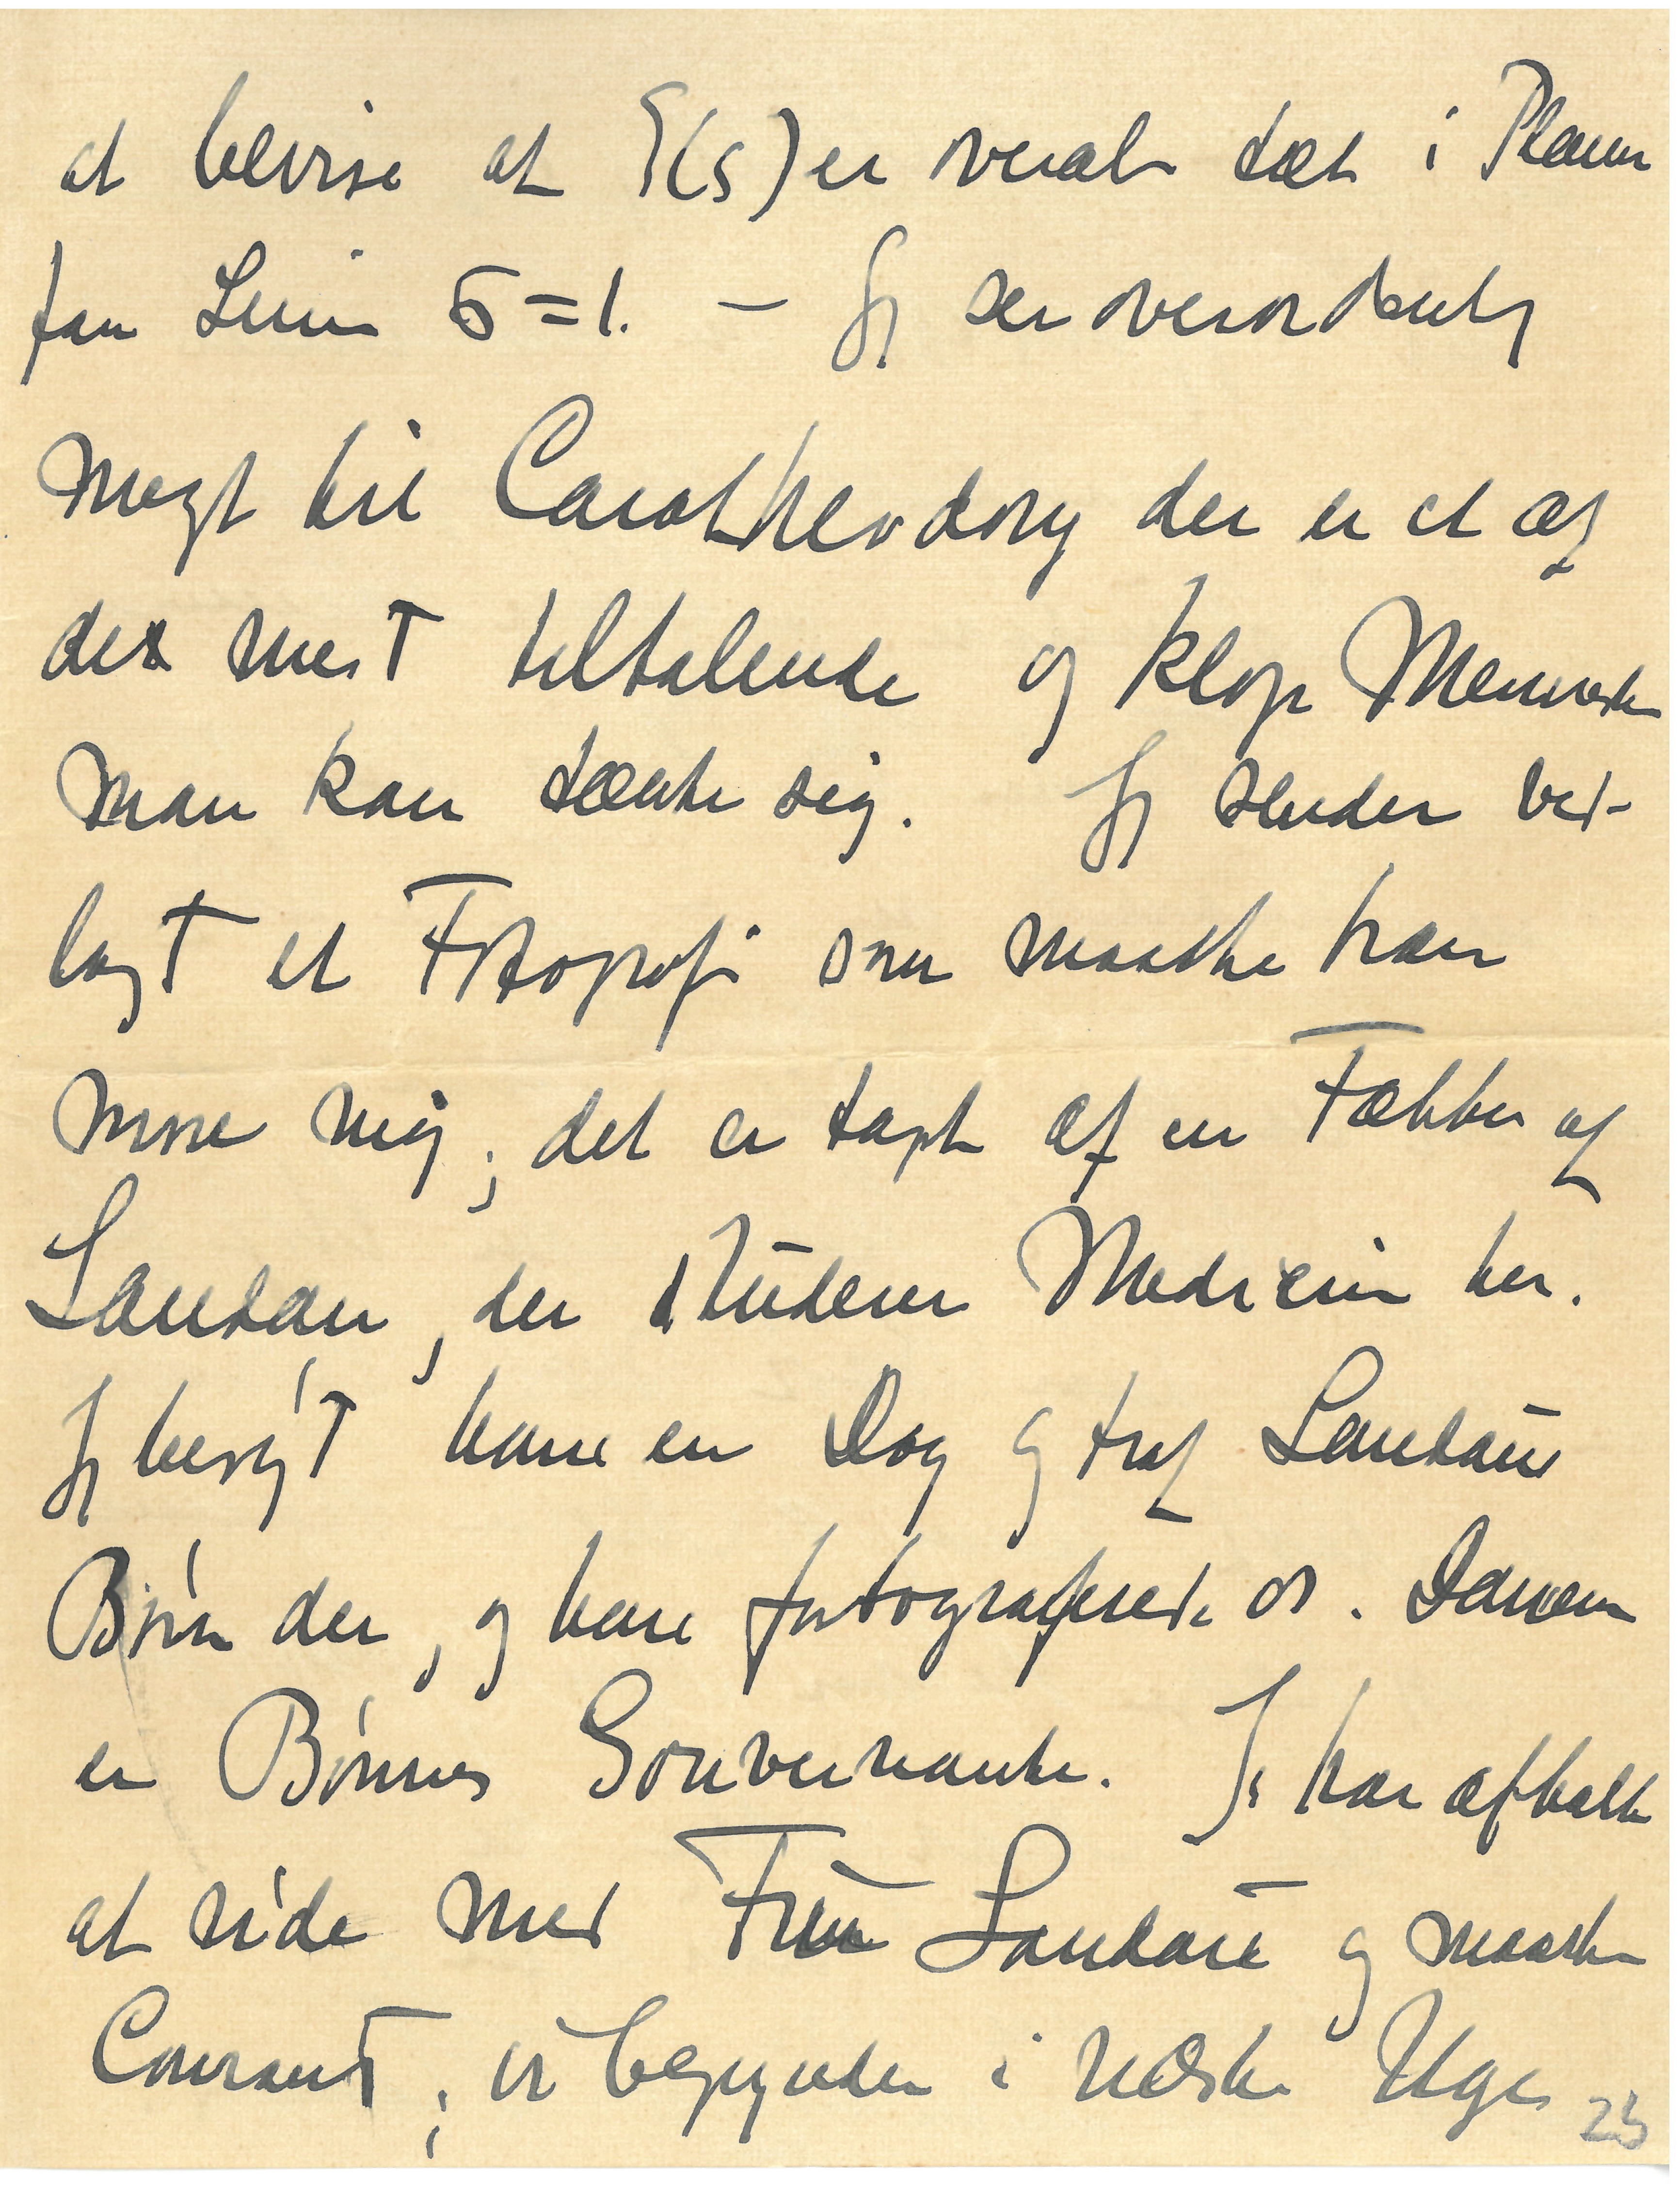 at bevise at ζ(s) er overalt tæt i Planen
paa Linien σ=1. – Jeg ser overordentlig
meget til Carathéodory der er et af
de mest tiltalende og kloge Mennesker
man kan tænke sig. Jeg sender ved-
lagt et Fotografi som maaske kan
more dig; det er taget af en Fætter af
Landau, der studerer Medicin her.
Jeg besøgt ham en Dag og traf Landaus
Børn der, og han fotograferede os. Damen
er Børnenes Gouvernante. Jeg har aftalt
at ride med Fru Landau og maaske
Courant; vi begynder i næste Uge
23